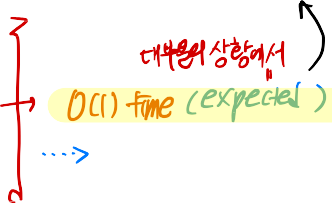 대부분의 상황에서
O(1) time (expected)